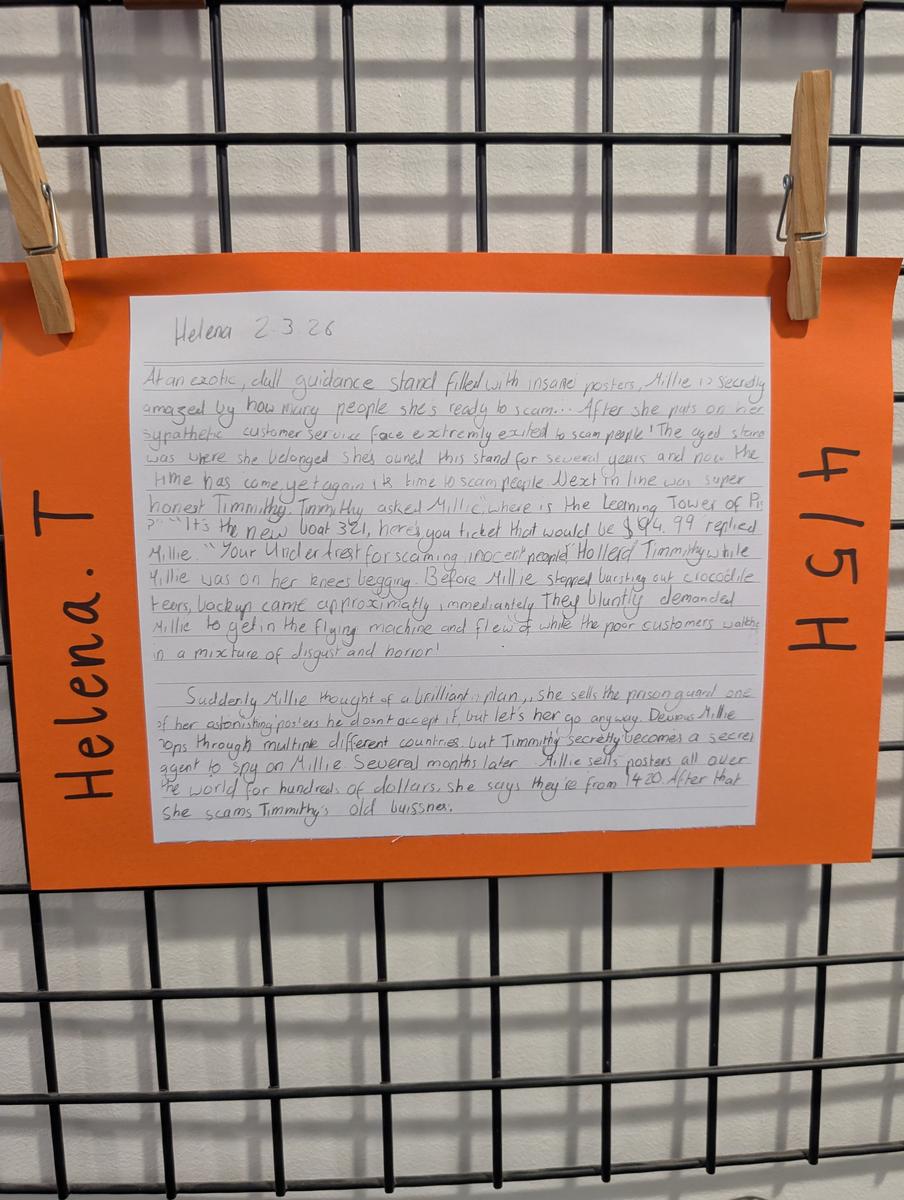 Helena 2.3.26
At an exotic, dull guidance stand filled with insane posters, Millie is secretly
amazed by how many people she's ready to scam... After she puts on her
sypathetic customer service face extremly exited to scam people! The aged stand
was where she belonged she's owned this stand for several years and now the
time has come, yet again its time to scam people. Next in line was super
honest Timmithy. Timmithy asked Millie "where is the Leening Tower of Pis
?" "It's the new boat 321, here's you ticket that would be $ 99 replied
Millie. "Your Under Arest for scaming inocent people" Hollerd Timmithy while
Millie was on her knees begging. Before Millie stopped bursting out crocodile
tears, backup came approximatly immediantely They bluntly demanded
Millie to get in the flying machine and flew of while the poor customers
in a mixture of disgust and horror!
Suddenly Millie thought of a brilliant plan, she sells the prison guard one
of her astonishing posters he dosn't accept it, but let's her go anyway. Devious Millie
hops through multiple different countries, but Timmithy secretly becomes a secret
agent to spy on Millie. Several months later Millie sells posters all over
the world for hundreds of dollars, she says they're from 1420. After that
she scams Timmithy's old buissnes.
Helena. T
4/5H